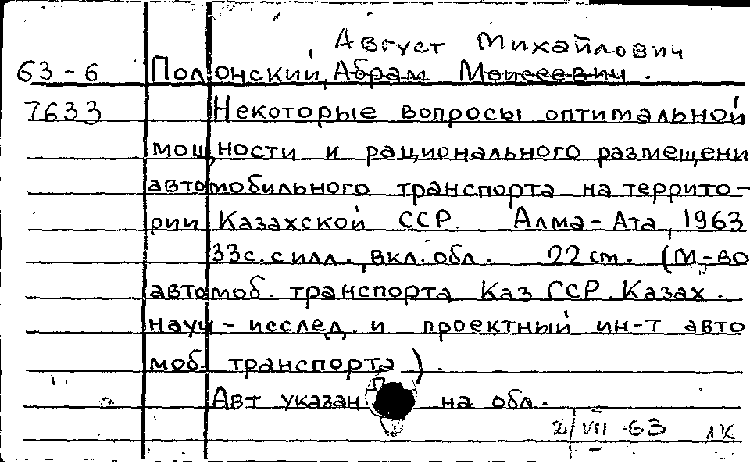 Август Михайлович
63-6 Полонский, Абрам Моисеевич.
7633 Некоторые вопросы оптимальной
мощности и рационального размещени
автомобильного транспорта на террито-
рии Казахской ССР. Алма-Ата, 1963
33с. с илл., вкл. обл. 22 см. (М-во
автомоб. транспорта Каз ССР. Казах.
науч-исслед. и проектный ин-т авто
моб. транспорта).
Авт указан на обл.
2/VII-63 ЛК